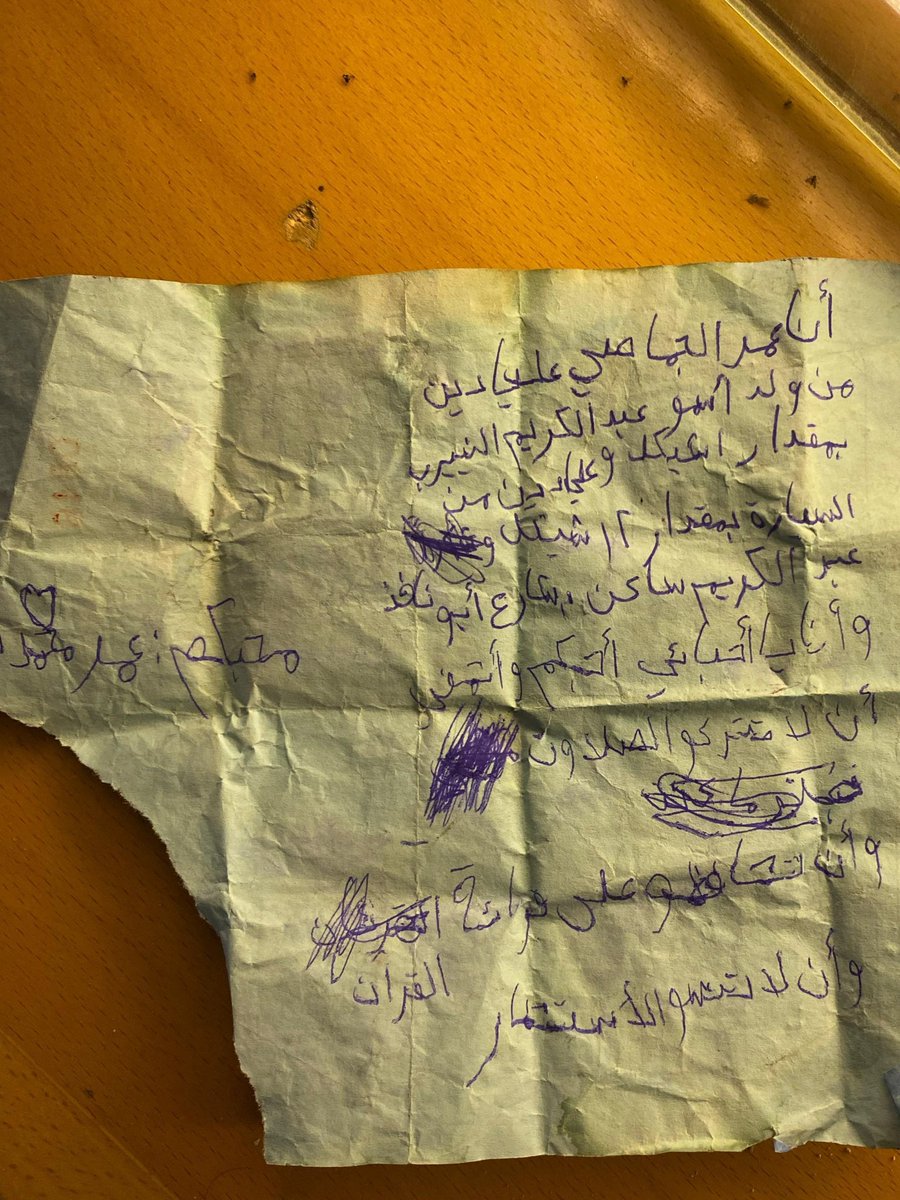 أنا عمر الجماصي عليا دين
من ولد اسمو عبد الكريم النيرب
بمقدار 1شيكل وعليا دين من
السيارة بمقدار 2 شيكل و
عبد الكريم ساكن شارع أبو نافذ
وأنا يا أحبائي أحبكم وأتمنى
أن لا تتركو الصلاوت
وأن تحافظو على قرائة
القرأن
وأن لا تنسو الأستغفار
محبكم: عمر محمد